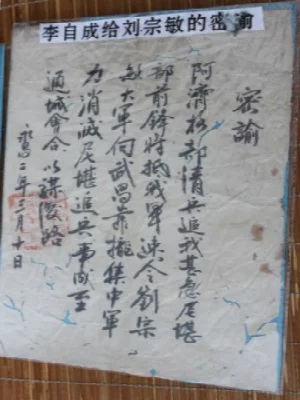 李自成给刘宗敏的密谕
密谕
阿濟格部清兵追我甚急尼堪
部前鋒將抵我軍速令劉宗
敏大軍向武昌靠攏集中軍
力消滅尼堪追兵事成至
通城會合以謀後路
永昌二年三月十日